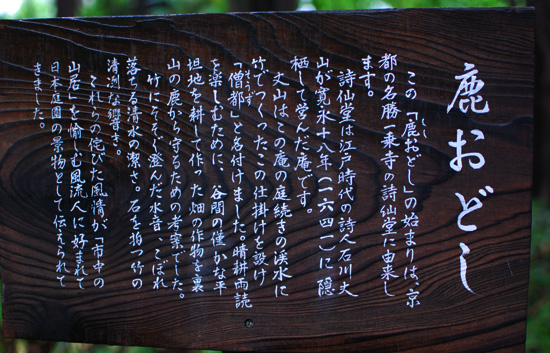 鹿おどし
この「鹿おどし」の始まりは、京
しし
都の名勝一乗寺の詩仙堂に由来し
ます。
詩仙堂は江戸時代の詩人石川丈
山が寛永十八年(一六四一)に隠
栖して営んだ庵です。
丈山はこの庵の庭続きの渓水に
竹でつくったこの仕掛けを設け
「僧都」と名付けました。晴耕雨読
そうず
を楽しむために、谷間の僅かな平
坦地を耕して作った畑の作物を裏
山の鹿から守るための考案でした。
竹にそそぐ澄んだ水音、こぼれ
落ちる清水の潔さ。石を拍つ竹の
清冽な響き。
これらの侘びた風情が「市中の
山居」を愉しむ風流人に好まれて
日本庭園の景物として伝えられて
きました。